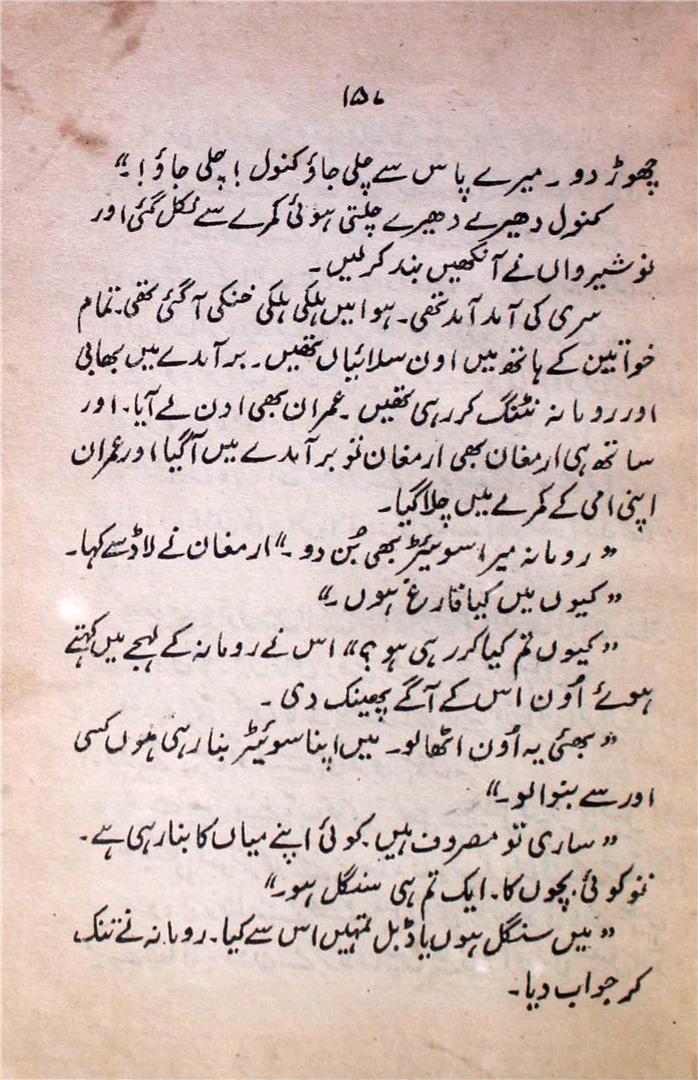 ۱۵۷
چھوڑ دو۔ میرے پاس سے چلی جاؤ کنول! چلی جاؤ!۔“
کنول دھیرے دھیرے چلتی ہوئی کمرے سے نکل گئی اور
نوشیرواں نے آنکھیں بند کر لیں۔
سری کی آمد آمد تھی۔ ہوا میں ہلکی ہلکی خنکی آ گئی تھی۔ تمام
خواتین کے ہاتھ میں اون سلائیاں تھیں۔ برآمدے میں بھابی
اور رومانہ نٹنگ کر رہی تھیں۔ عمران بھی اون لے آیا۔ اور
ساتھ ہی ارمغان بھی ارمغان تو برآمدے میں آ گیا اور عمران
اپنی امی کے کمرے میں چلا گیا۔
”رومانہ میرا سوئیٹر بھی بُن دو۔“ ارمغان نے لاڈ سے کہا۔
”کیوں میں کیا فارغ ہوں۔“
”کیوں تم کیا کر رہی ہو؟“ اس نے رومانہ کے لہجے میں کہتے
ہوئے اُون اس کے آگے پھینک دی۔
”بھئی یہ اُون اٹھا لو۔ میں اپنا سوئیٹر بنا رہی ہوں کسی
اور سے بنوا لو۔“
”ساری تو مصروف ہیں کوئی اپنے میاں کا بنا رہی ہے۔
تو کوئی بچوں کا۔ ایک تم ہی سنگل ہو۔“
”میں سنگل ہوں یا ڈبل تمہیں اس سے کیا۔ رومانہ نے تنک
کر جواب دیا۔